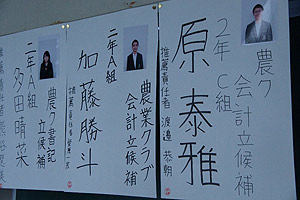 農ク
会計立候補
2年C組
原泰雅
推薦責任者 渡邉恭朝
農業クラブ
会計立候補
二年A組
加藤勝斗
推薦責任者
農ク書記
立候補
二年A組
多田晴菜
推薦責任者